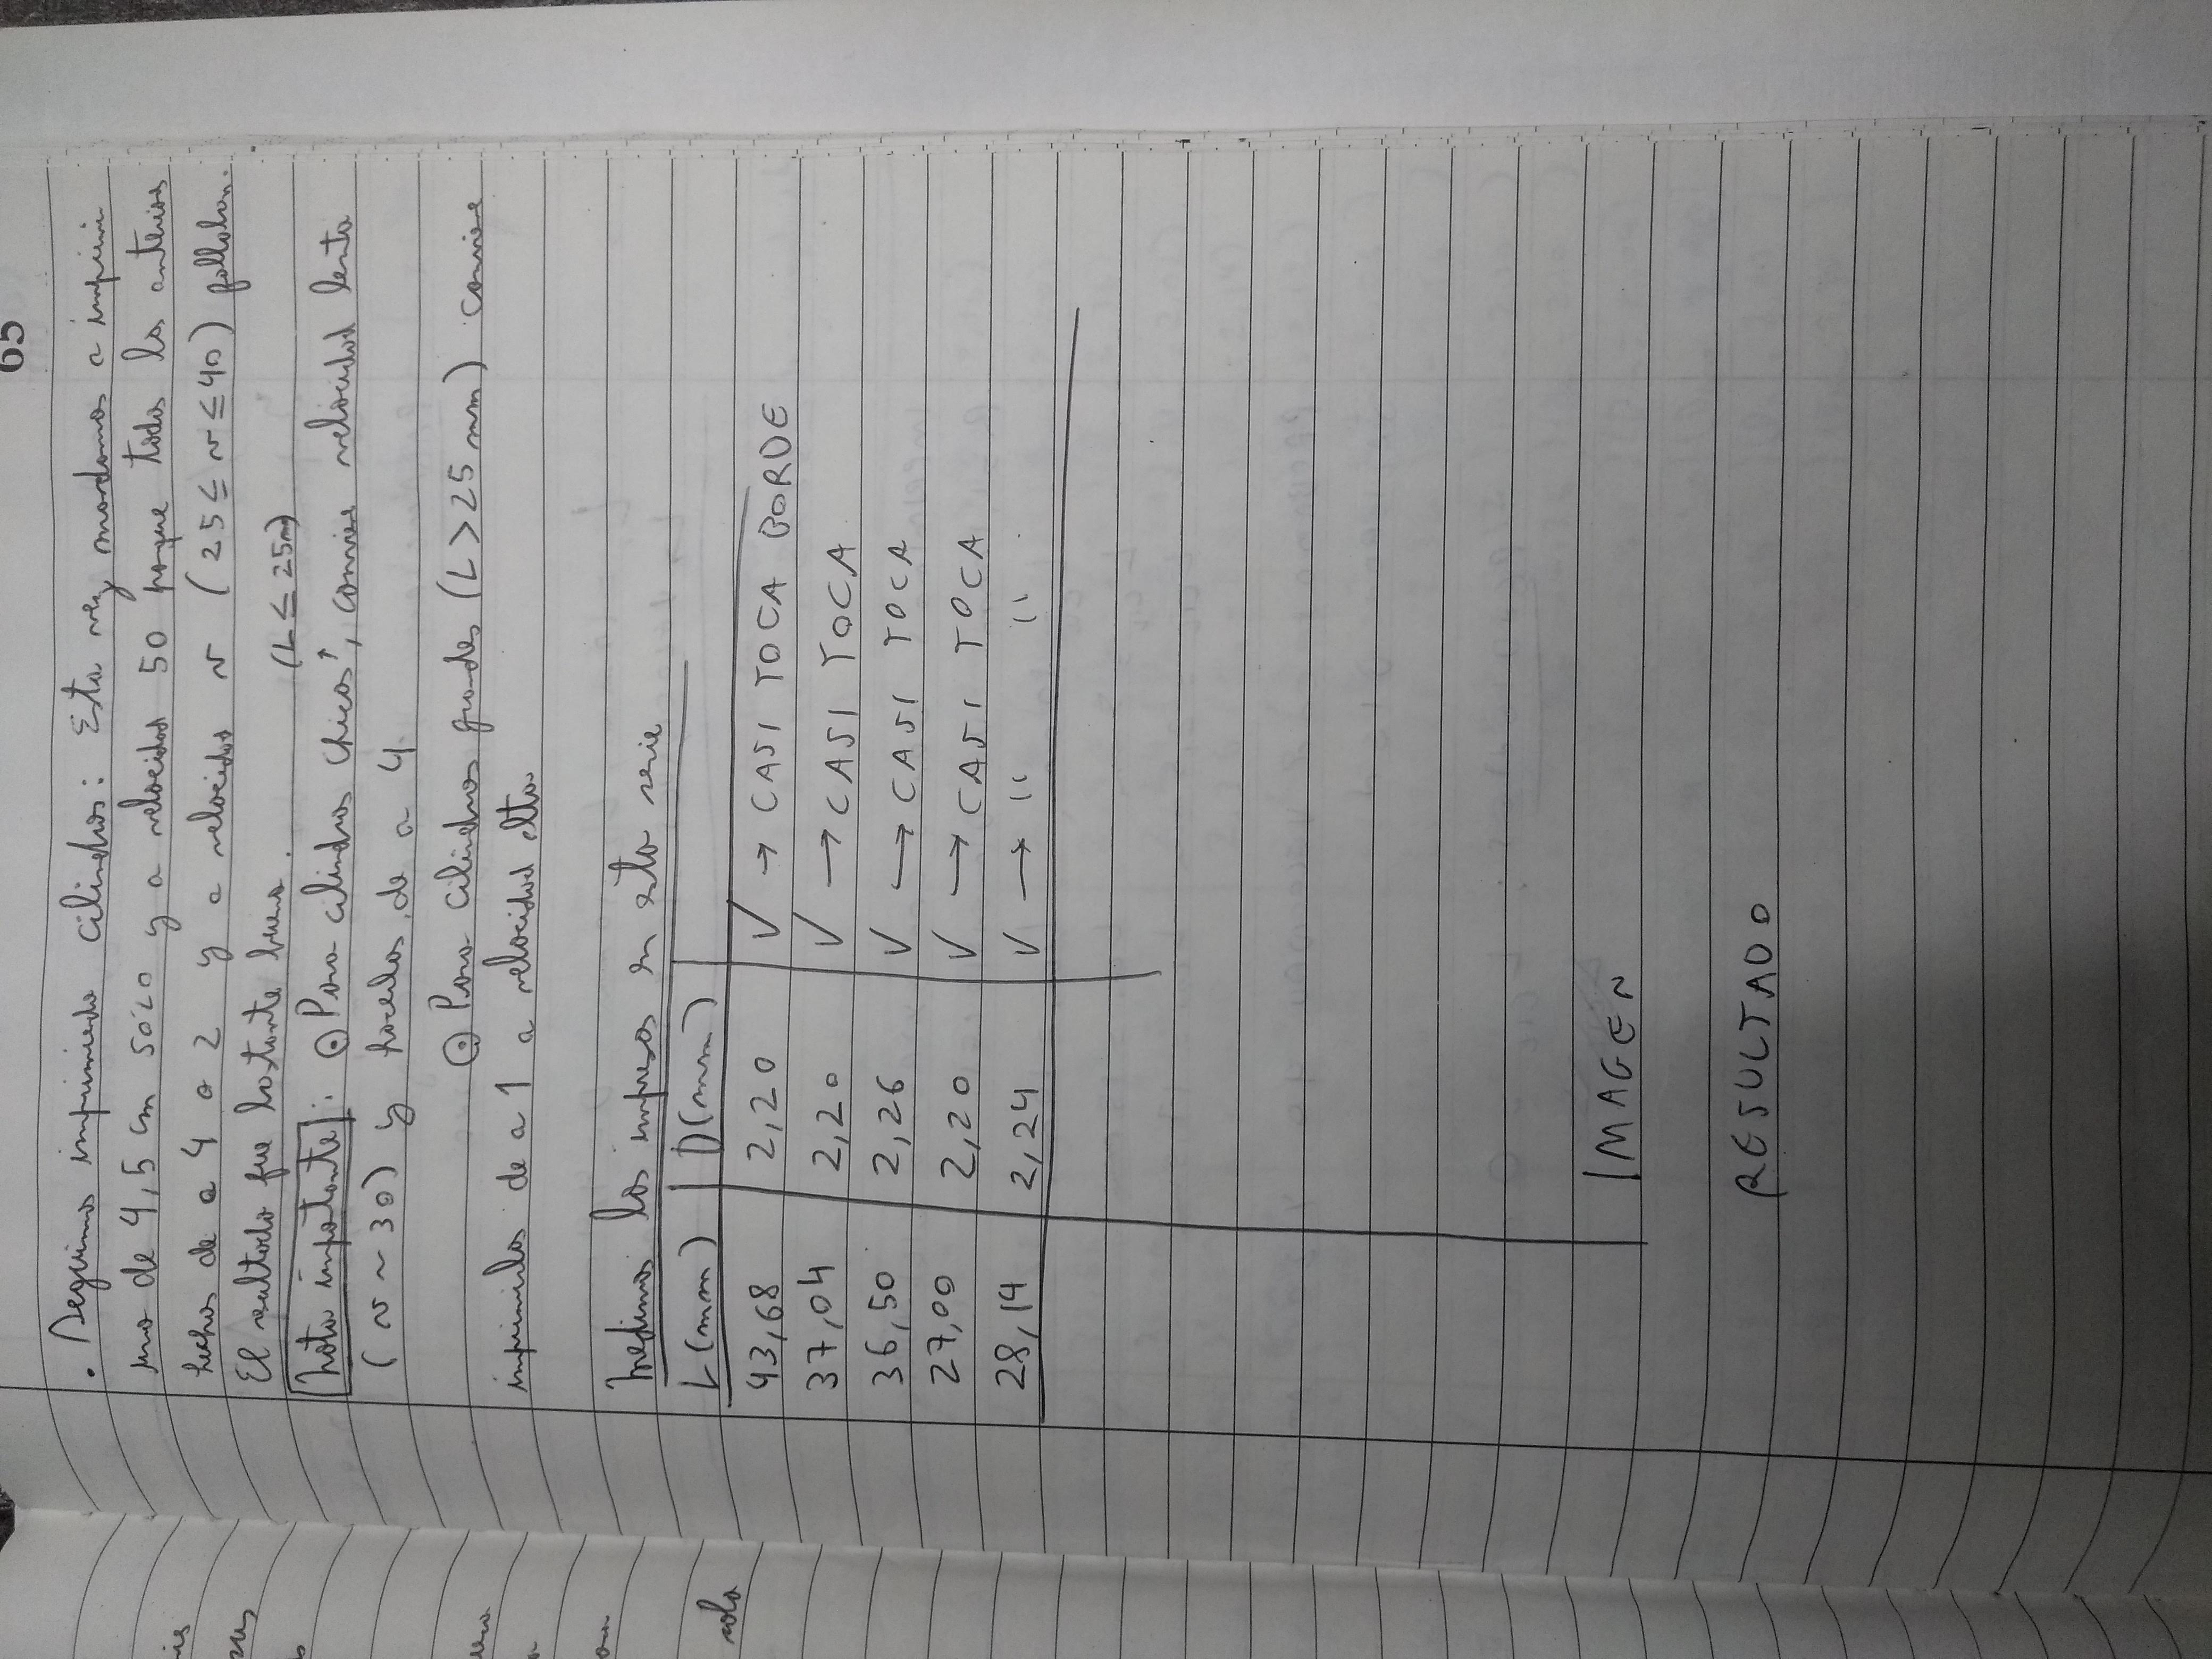 65
. Seguimos imprimiendo cilindros: Esta vez mandamos a imprimir
uno de 4,5 cm SÓLO y a velocidad 50 porque todos los anteriores
hechos de a 4 o 2 y a velocidad v (25 ≤ v ≤ 40) fallaban.
El resultado fue bastante bueno.
(L ≤ 25mm)
Nota importante: ⊙ Para cilindros chicos↑, conviene velocidad lenta
(v ~ 30) y hacerlos de a 4
⊙ Para cilindros grandes (L > 25 mm) conviene
imprimirlos de a 1 a velocidad alta
Medimos los impresos en esta serie
L (mm) D (mm)
43,68 2,20 ✓ → CASI TOCA BORDE
37,04 2,20 ✓ → CASI TOCA
36,50 2,26 ✓ → CASI TOCA
27,00 2,20 ✓ → CASI TOCA
28,14 2,24 ✓ → " "
IMAGEN
RESULTADO
sola